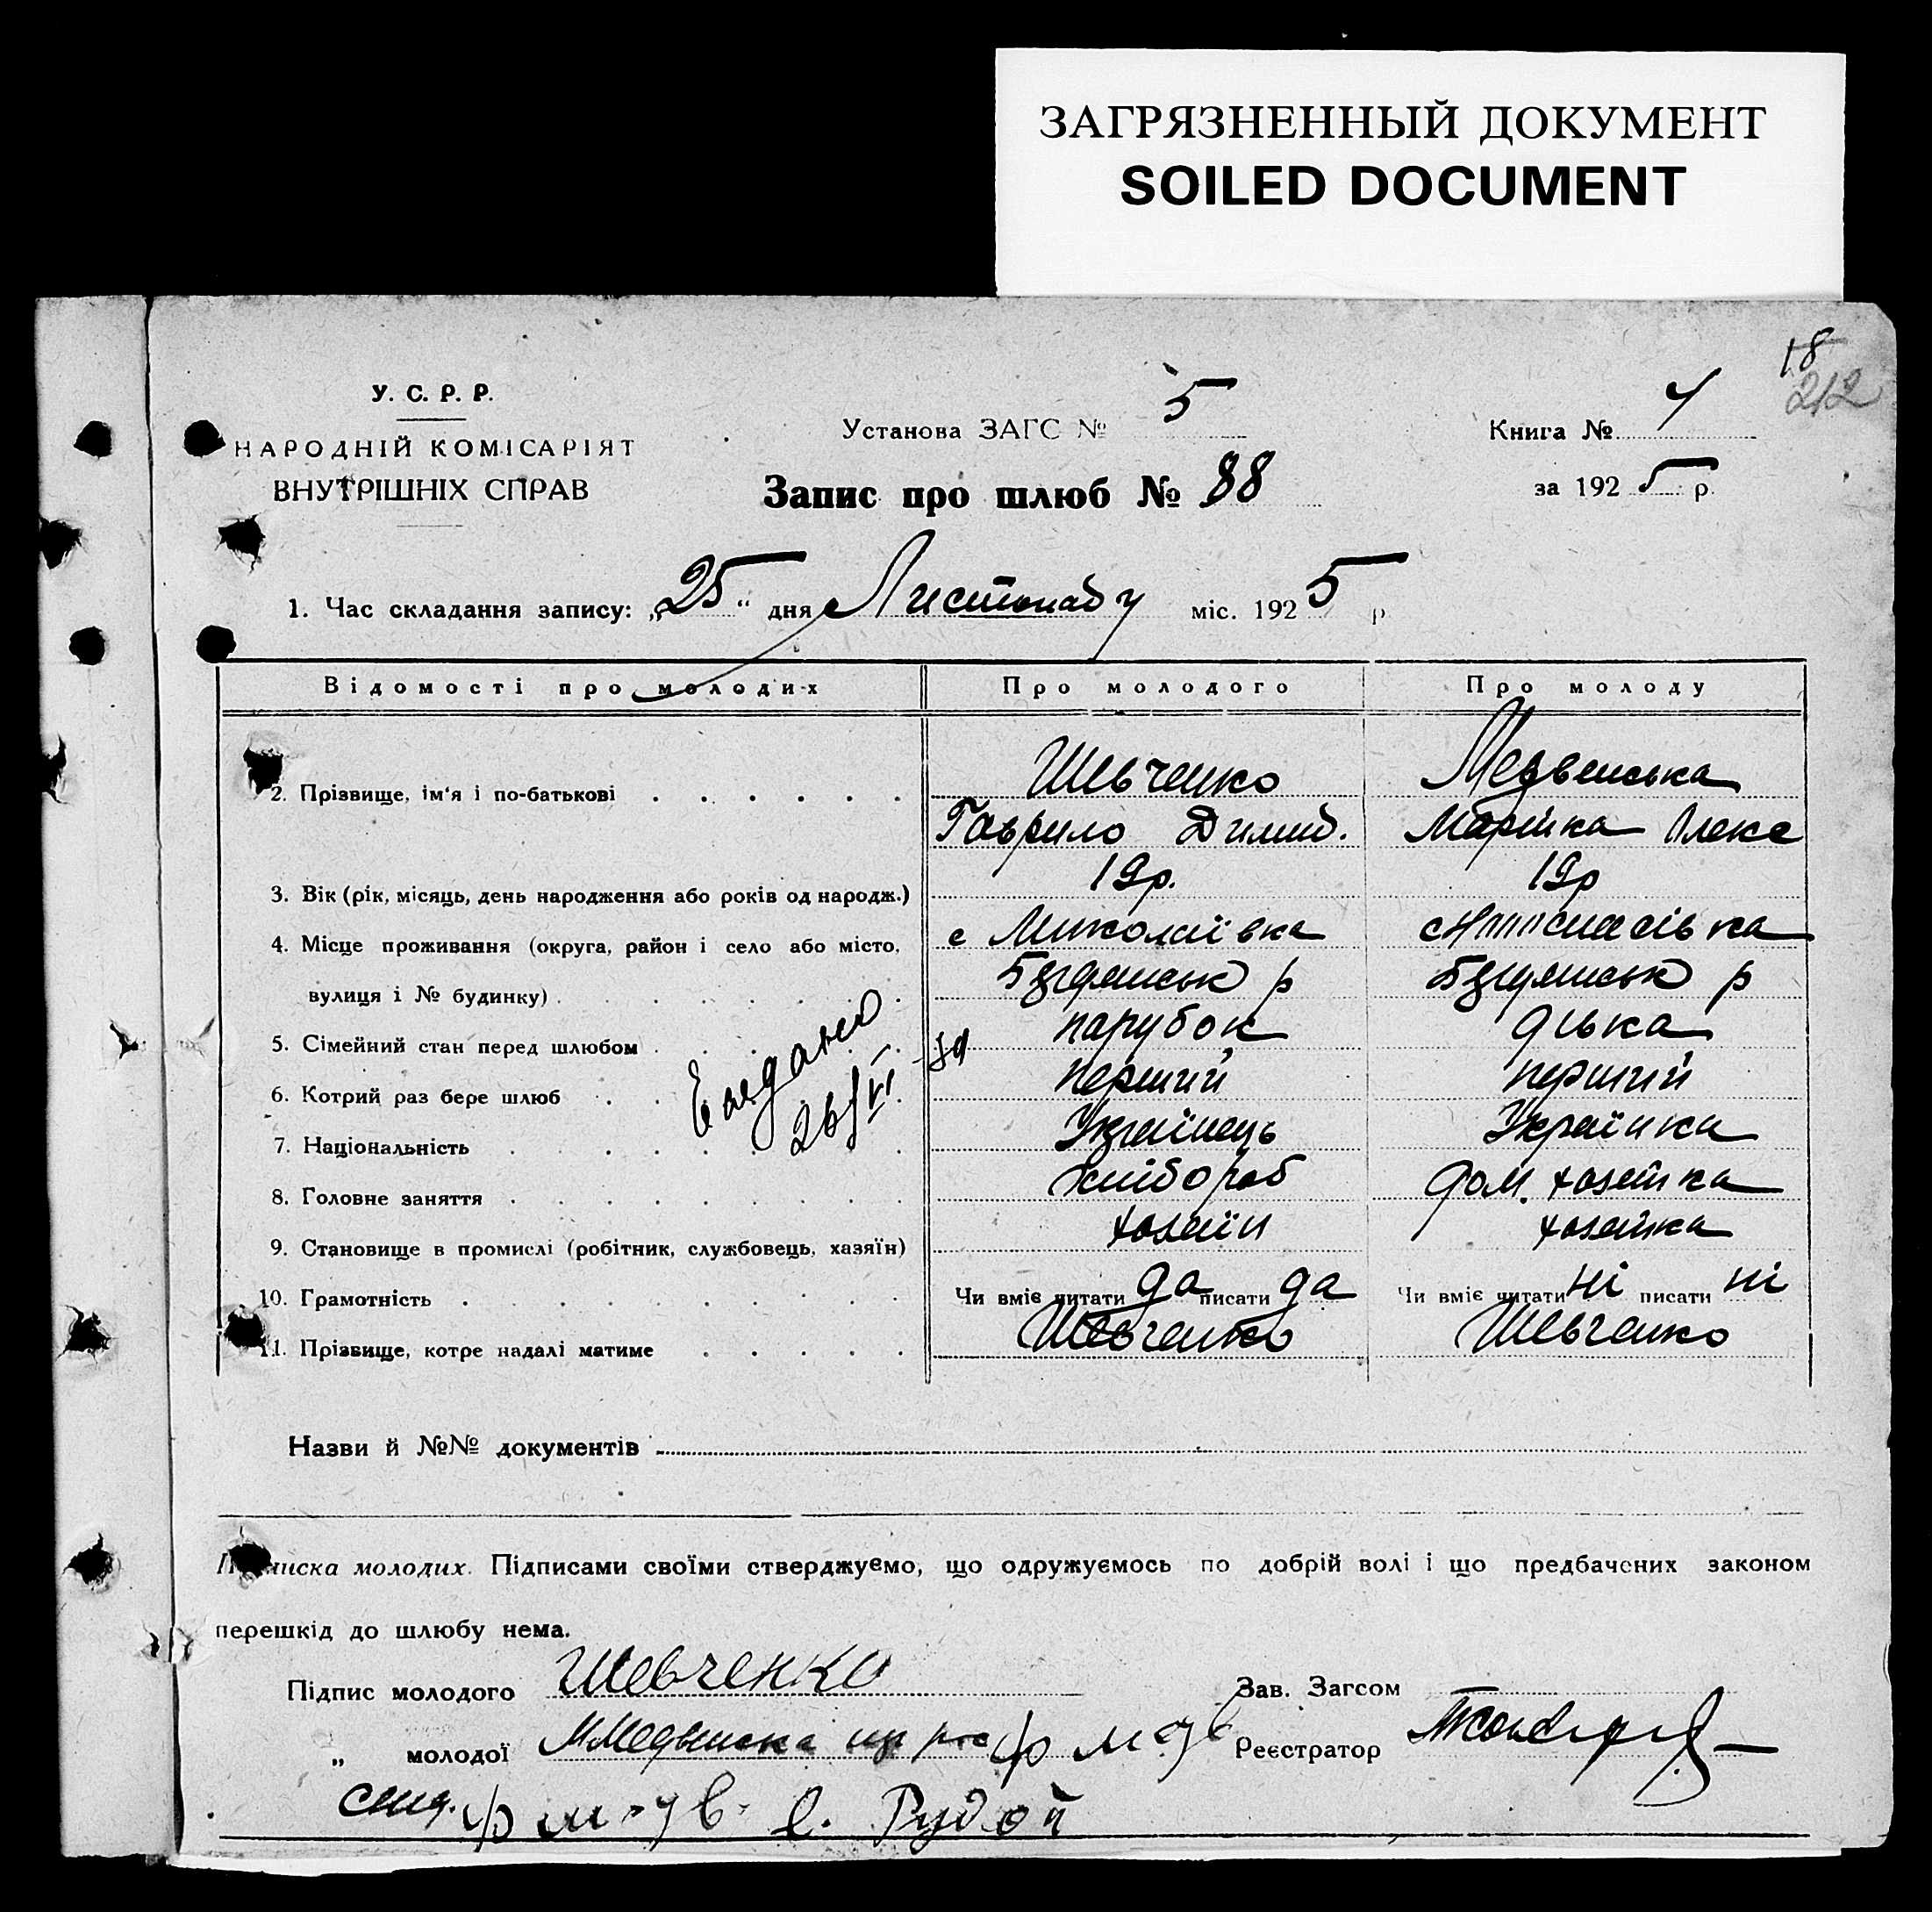 ЗАГРЯЗНЕННЫЙ ДОКУМЕНТ
SOILED DOCUMENT
18
212
У. С. Р. Р.
НАРОДНІЙ КОМІСАРІЯТ
ВНУТРІШНІХ СПРАВ
Установа ЗАГС № 5
Книга №
Запис про шлюб № 88
за 1925 р.
1. Час складання запису: „25“ дня Листопаду міс. 1925 р
Відомості про молодих Про молодого Про молоду
2. Прізвище, ім'я і по-батькові Шевченко Медвенська
Гаврило Димид. Марійка Олекс
3. Вік (рік, місяць, день народження або років од народж.) 19р. 19р
4. Місце проживання (округа, район і село або місто, с Миколаївка с
вулиця і № будинку) р р
5. Сімейний стан перед шлюбом парубок дівка
6. Котрий раз бере шлюб перший перший
7. Національність Українець Українка
8. Головне заняття хлібороб дом. хозяйка
9. Становище в промислі (робітник, службовець, хазяїн) хозяїн хозяйка
10. Грамотність Чи вміє читати да писати да Чи вміє читати ні писати ні
11. Прізвище, котре надалі матиме Шевченко Шевченко
26/VI
Назви й №№ документів
писка молодих. Підписами своїми стверджуємо, що одружуємось по добрій волі і що предбачених законом
перешкід до шлюбу нема.
Підпис молодого Шевченко
Зав. Загсом
„ молодої
Реєстратор
Рудой